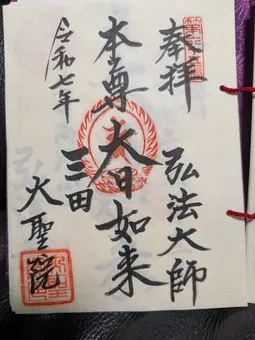 奉拝
弘法大師
本尊
大日如来
三田
大聖院
令和七年